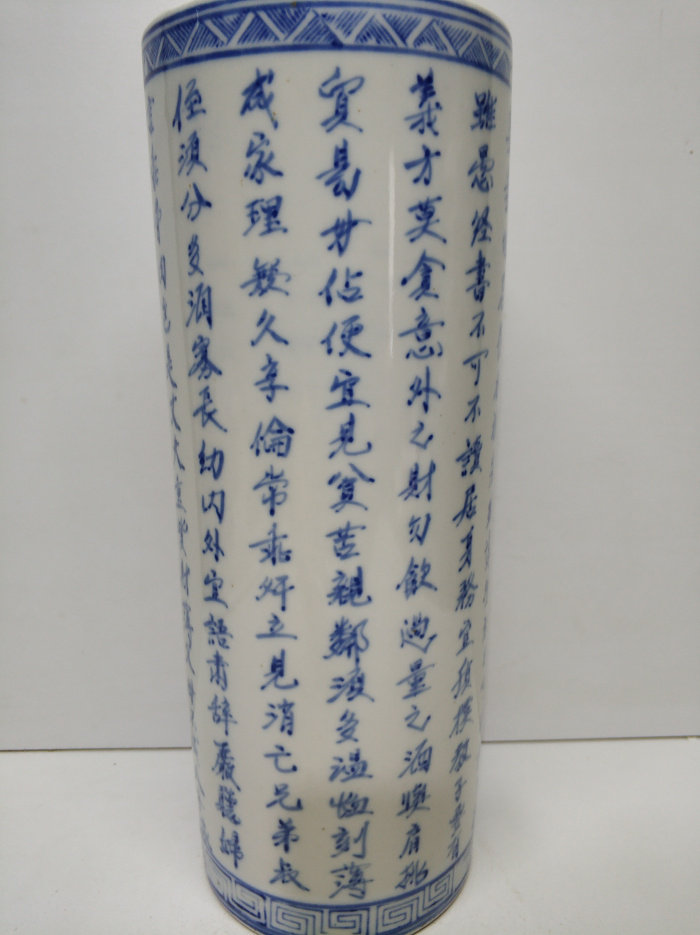 雖愚経書不可不讀居身務宜質樸教子要有
義方莫貪意外之財勿飲過量之酒與肩挑
貿易毋佔便宜見貧苦親鄰須多温恤刻薄
成家理無久享倫常乖舛立見消亡兄弟叔
侄須分多潤寡長幼内外宜語肅辭嚴聽婦
肉豈是丈夫重資財薄父母